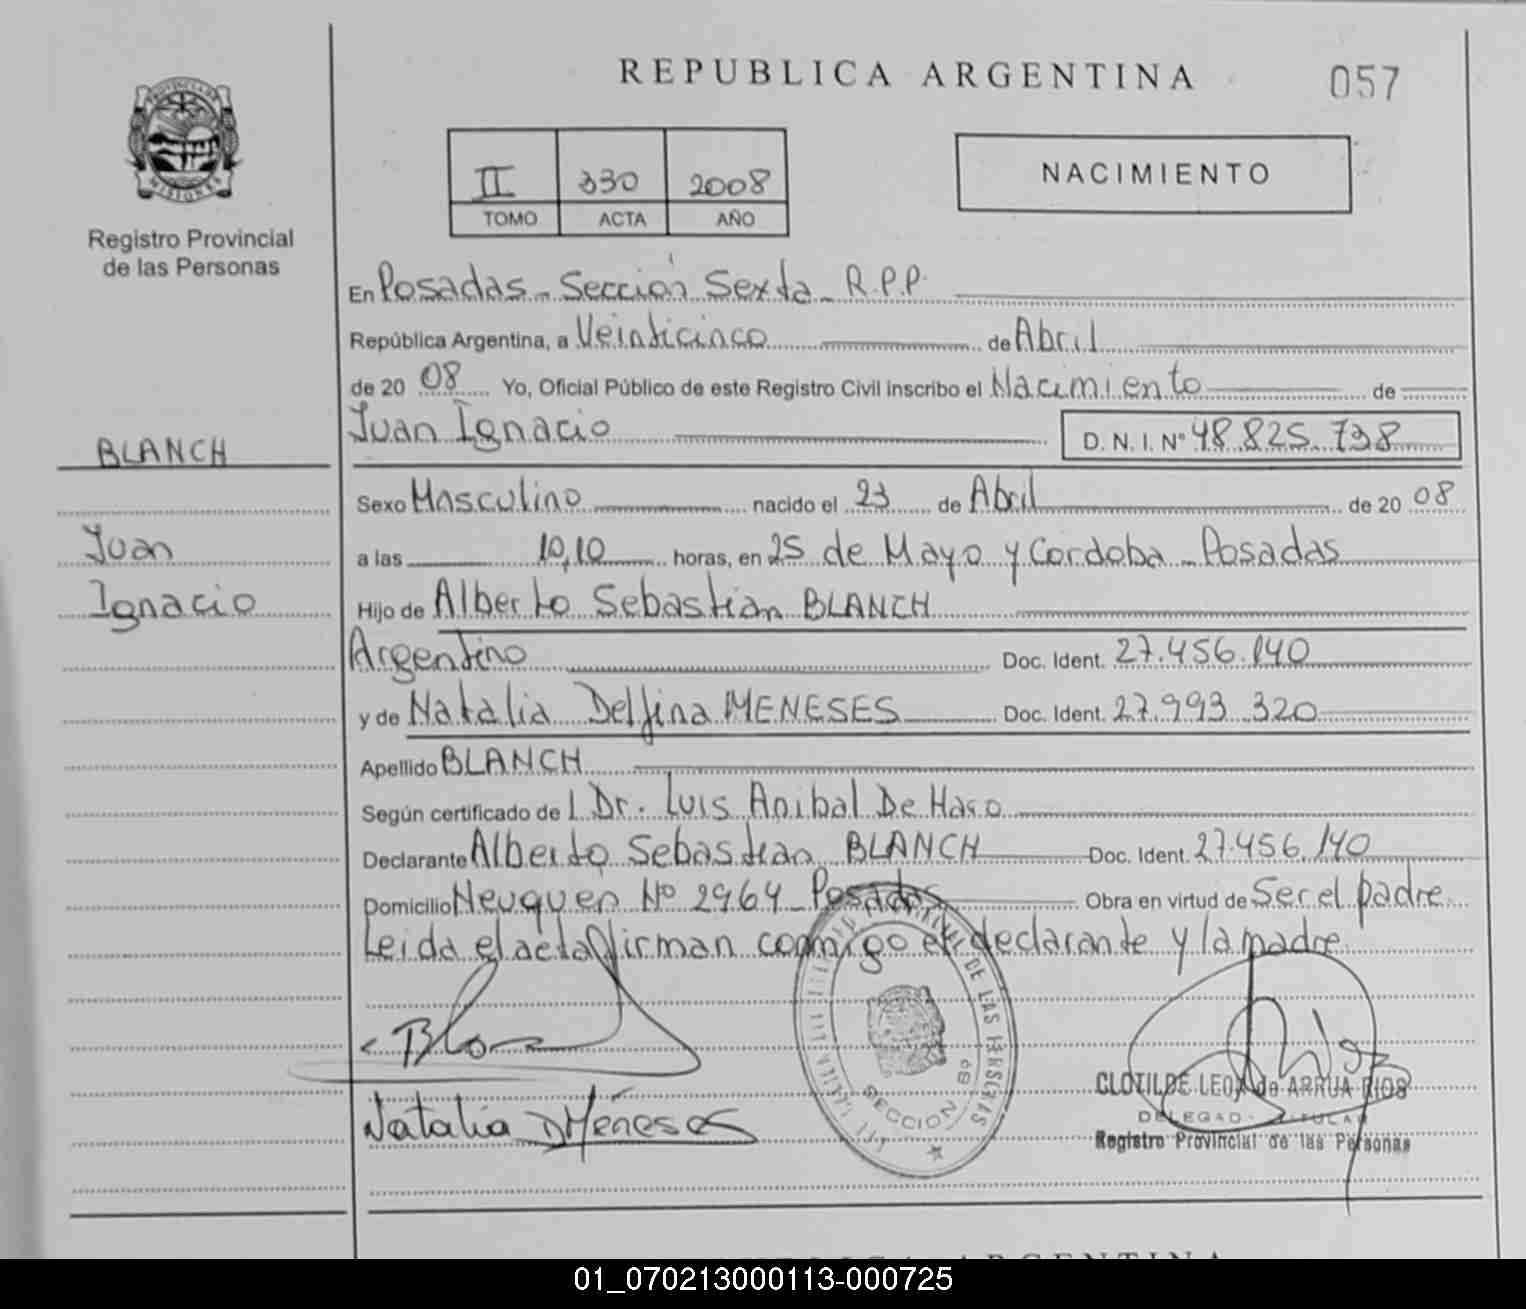 REPUBLICA ARGENTINA
057
PROVINCIA DE
MISIONES
Registro Provincial
de las Personas
II 330 2008
TOMO ACTA AÑO
NACIMIENTO
En Posadas - Sección Sexta - R.P.P.
República Argentina, a Veinticinco de Abril
de 20 08 Yo, Oficial Público de este Registro Civil inscribo el Nacimiento de
Juan Ignacio D. N. I. Nº 48.825.738
BLANCH
Juan
Ignacio
Sexo Masculino nacido el 23 de Abril de 20 08
a las 10,10 horas, en 25 de Mayo y Cordoba - Posadas
Hijo de Alberto Sebastian BLANCH
Argentino Doc. Ident. 27.456.140
y de Natalia Delfina MENESES Doc. Ident. 27.993.320
Apellido BLANCH
Según certificado de l Dr. Luis Anibal De Haro
Declarante Alberto Sebastian BLANCH Doc. Ident. 27.456.140
Domicilio Neuquen Nº 2964 - Posadas Obra en virtud de Ser el padre
Leida el acta firman conmigo el declarante y la madre
Natalia D Meneses
DE LAS PERSONAS
SECCION 6ª
CLOTILDE LEON de ARRUA RIOS
Registro Provincial de las Personas
REPUBLICA ARGENTINA
01_070213000113-000725